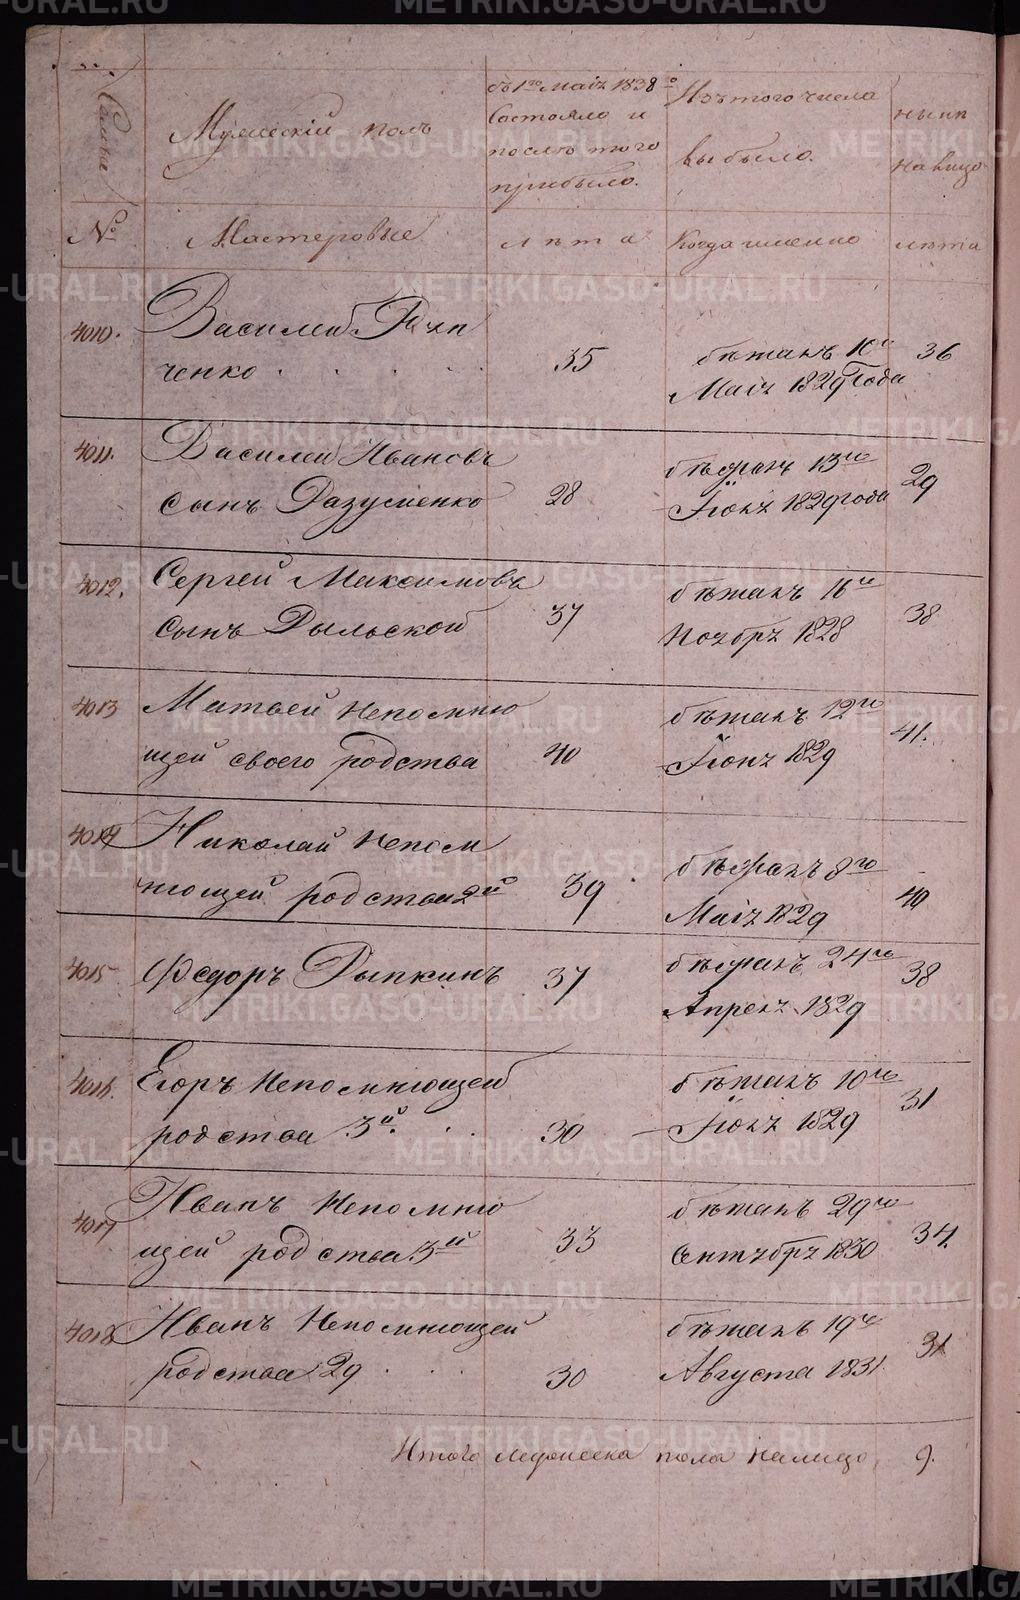 METRIKI.GASO-URAL.RU
Семьи
Мужескiй полъ
съ 1го маiя 1838го
Состояло и
послѣ того
прибыло.
Изъ того числа
выбыло.
нынѣ
на лицо
№
Мастеровые
лѣта
Когда именно
лѣта
4010.
Василей
ченко . . . . .
35
бѣжалъ 10го
Маiя 1829 года
36
4011.
Василей Ивановъ
сынъ Разуменко
28
бѣжалъ 13го
Iюля 1829 года
29
4012.
Сергей Максимовъ
сынъ Рыльской
37
бѣжалъ 16го
Ноябрь 1828
38
4013
Матвей Непомню
щей своего родства
40
бѣжалъ 12го
Iюня 1829
41.
4014
Николай Непом
нющей родства 2й
39
бѣжалъ 8го
Маiя 1829
40
4015
Федоръ Рыпкинъ
37
бѣжалъ 24го
Апреля 1829
38
4016.
Егоръ Непомнющей
родства 3й. . .
30
бѣжалъ 10го
Iюля 1829
31
4017
Иванъ Непомню
щей родства 3й
33
бѣжалъ 29го
Октября 1830
34.
4018
Иванъ Непомнющей
родства 29 . . .
30
бѣжалъ 19го
Августа 1831.
31
Итого мужеска пола налицо,
9.